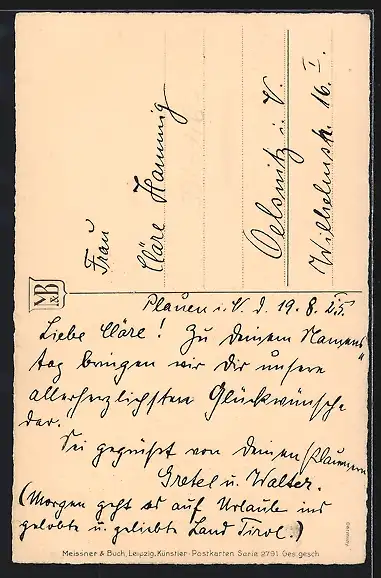 Frau
Cläre Hannnig
Oelsnitz i. V.
Wilhelmstr. 16. I.
M&B
Plauen i. V. d. 19. 8. 25.
Liebe Cläre! Zu deinem Namens-
tag bringen wir Dir unsere
allerherzlichsten Glückwünsche
dar.
Sei gegrüßt von deinen Plauenern
Gretel u. Walter.
(Morgen geht es auf Urlaub ins
gelobte u. geliebte Land Tirol.)
Meissner & Buch, Leipzig. Künstler-Postkarten Serie 2791 Ges. gesch
Germany